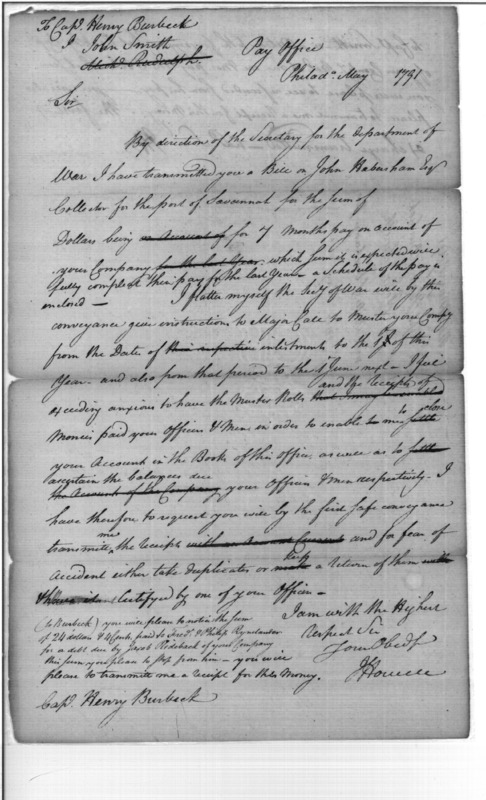 To Capt. Henry Burbeck
J John Smith
Michl. Rudolph
Pay Office
Philada. May 1791
Sir
By direction of the Secretary for the department of
War I have transmitted you a Bill on John Habersham Esqr
Collector for the port of Savannah for the sum of
Dollars being on Account of for 7 Months pay on account of
your Company for the last Year, which sum it is expected will
fully compleat their pay for the last Year a Schedule of the pay is
enclosed — I flatter myself the Secy of War will by this
conveyance give instruction to Major Call to Muster your Compy
from the Date of their respective inlistments to the 1 Jy of this
Year - and also from that period to the 1st June next - I feel
exceeding anxious to have the Muster Rolls that I may and the receipts of
Monies paid your Officers & Men in order to enable to me to settle close
your Account in the Books of this office, as well as to settle
ascertain the balances due
the Account of the Company your Officers & Men respectively. I
have therefore to request you will by the first safe conveyance
transmit me the receipts with an Account Current and for fear of
Accident either take duplicates or make keep a return of them with
certifyed by one of your Officers —
(to Burbeck) you will please to notice the sum
of 24 dollars & 4 Cents paid to Fredk. & Philip Rynelander
for a debt due by Jacob Rodeback of your Company
this sum you please to stop from him — you will
please to transmit me a receipt for this Money.
I am with the Highest
Respect Sir
Your Obedt
J Howell
Capt. Henry Burbeck